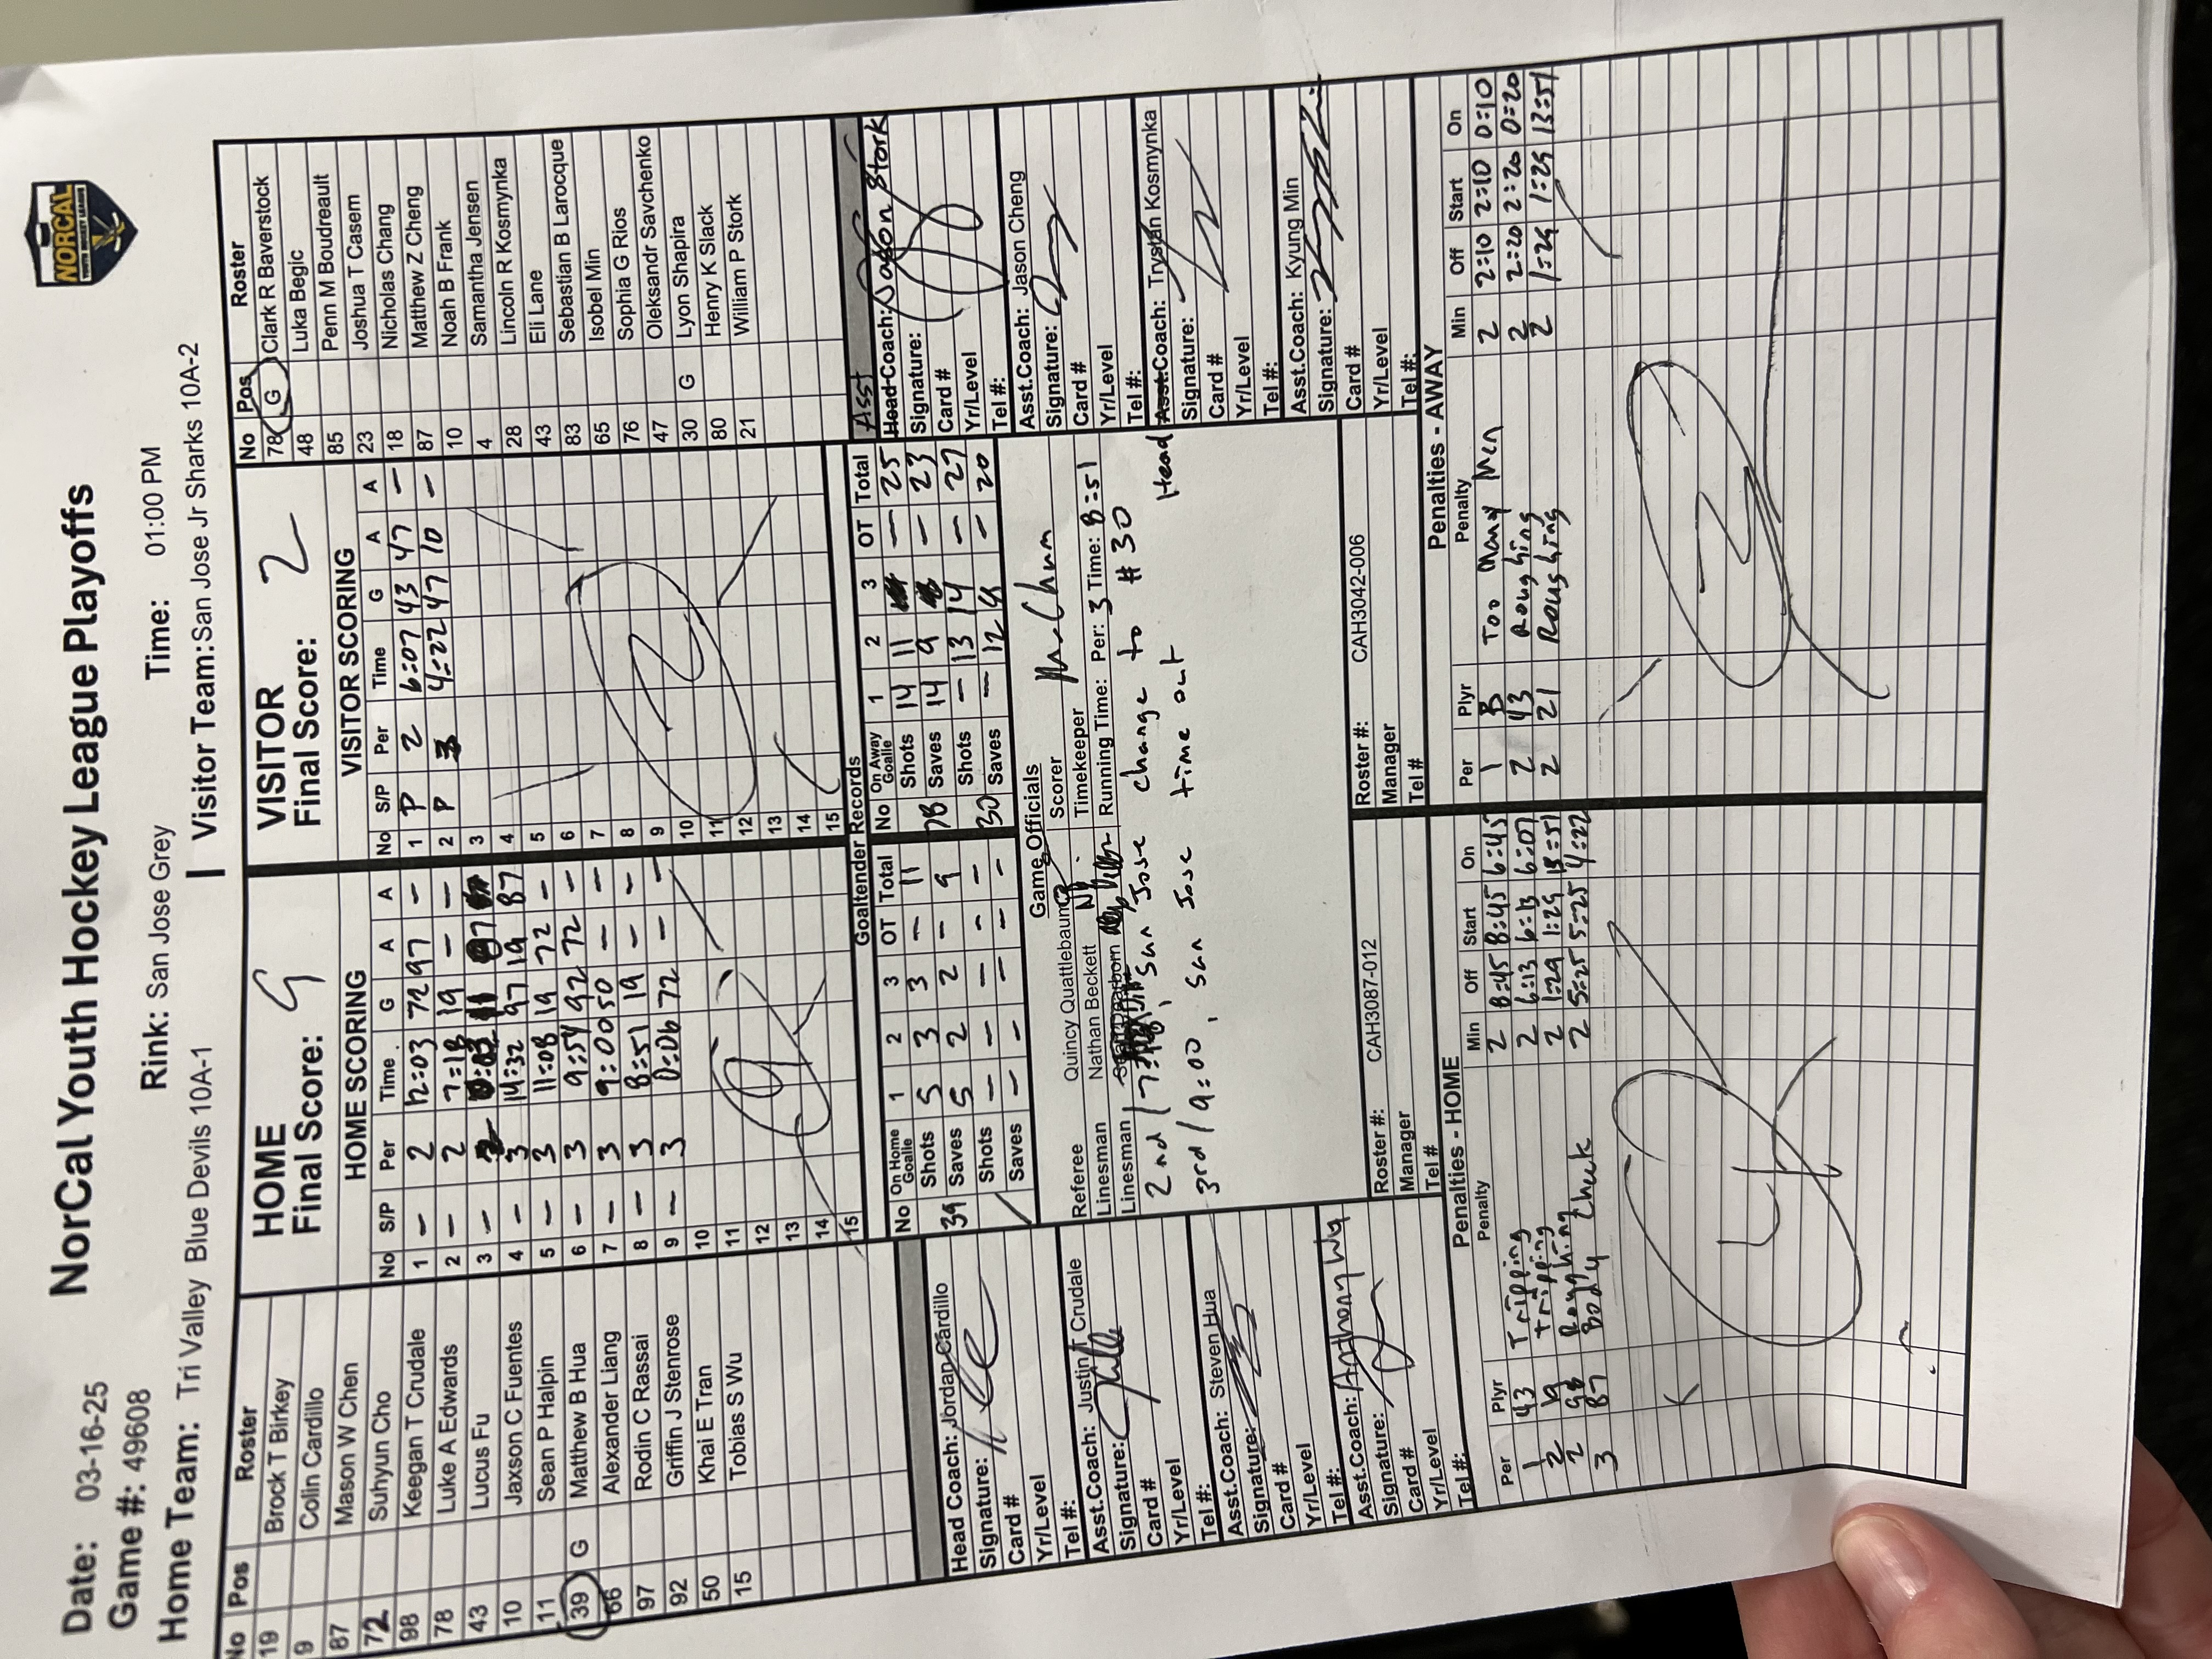 NORCAL
NorCal Youth Hockey League Playoffs
Date: 03-16-25
Rink: San Jose Grey
Time: 01:00 PM
Game #: 49608
Home Team: Tri Valley Blue Devils 10A-1
Visitor Team: San Jose Jr Sharks 10A-2
No Pos Roster
19 Brock T Birkey
9 Colin Cardillo
87 Mason W Chen
72 Suhyun Cho
98 Keegan T Crudale
78 Luke A Edwards
43 Lucus Fu
10 Jaxson C Fuentes
11 Sean P Halpin
39 G Matthew B Hua
66 Alexander Liang
97 Rodin C Rassai
92 Griffin J Stenrose
50 Khai E Tran
15 Tobias S Wu
HOME
Final Score: 9
HOME SCORING
No S/P Per Time G A A
1 – 2 12:03 72 97 –
2 – 2 7:18 19 – –
3 –
4 – 3 14:32 97 19 87
5 – 3 11:08 19 72 –
6 – 3 9:54 92 72 –
7 – 3 9:00 50 – –
8 – 3 8:51 19 – –
9 – 3 0:06 72 – –
10
11
12
13
14
15
VISITOR
Final Score: 2
VISITOR SCORING
No S/P Per Time G A A
1 P 2 6:07 43 47 –
2 P 3 4:22 47 10 –
3
4
5
6
7
8
9
10
11
12
13
14
15
No Pos Roster
78 G Clark R Baverstock
48 Luka Begic
85 Penn M Boudreault
23 Joshua T Casem
18 Nicholas Chang
87 Matthew Z Cheng
10 Noah B Frank
4 Samantha Jensen
28 Lincoln R Kosmynka
43 Eli Lane
83 Sebastian B Larocque
65 Isobel Min
76 Sophia G Rios
47 Oleksandr Savchenko
30 G Lyon Shapira
80 Henry K Slack
21 William P Stork
Goaltender Records
No On Home Goalie 1 2 3 OT Total
39 Shots 5 3 3 – 11
Saves 5 2 2 – 9
Shots – – – – –
Saves – – – – –
No On Away Goalie 1 2 3 OT Total
78 Shots 14 11 – 25
Saves 14 9 – 23
30 Shots – 13 14 – 27
Saves – 12 – 20
Head Coach: Jordan Cardillo
Signature:
Card #
Yr/Level
Tel #:
Asst.Coach: Justin T Crudale
Signature:
Card #
Yr/Level
Tel #:
Asst.Coach: Steven Hua
Signature:
Card #
Yr/Level
Tel #:
Asst.Coach: Anthony Wu
Signature:
Card #
Yr/Level
Tel #:
Game Officials
Referee Quincy Quattlebaum
Scorer
Linesman Nathan Beckett NB
Timekeeper
Linesman
Running Time: Per: 3 Time: 8:51
San Jose change to #30
3rd / 9:00, San Jose time out
Roster #: CAH3087-012
Manager
Tel #
Roster #: CAH3042-006
Manager
Tel #
Asst
Head Coach: Jason Stork
Signature:
Card #
Yr/Level
Tel #:
Asst.Coach: Jason Cheng
Signature:
Card #
Yr/Level
Tel #:
Head
Asst.Coach: Trystan Kosmynka
Signature:
Card #
Yr/Level
Tel #:
Asst.Coach: Kyung Min
Signature:
Card #
Yr/Level
Tel #:
Penalties - HOME
Per Plyr Penalty Min Off Start On
1 43 Tripping 2 8:45 8:45 6:45
2 19 tripping 2 6:13 6:13 6:07
2 98 Roughing 2 1:29 1:29 13:51
3 87 Body Check 2 5:25 5:25 4:22
4
Penalties - AWAY
Per Plyr Penalty Min Off Start On
1 B Too Many Men 2 2:10 2:10 0:10
2 43 Roughing 2 2:20 2:20 0:20
2 21 Roughing 2 1:29 1:29 13:51